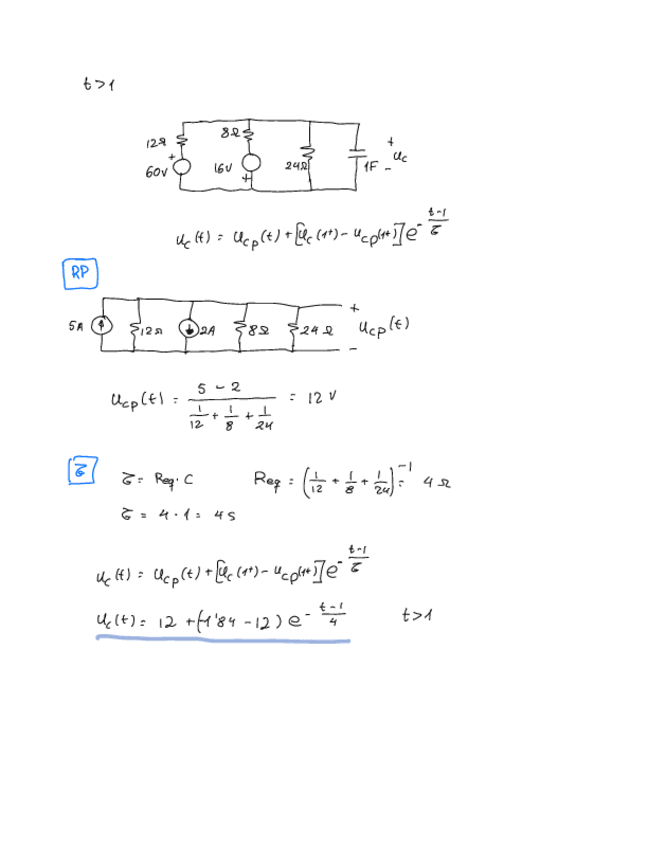 t>1
12Ω
+
60V
8Ω
16V
+
24Ω
1F
+
u_c
-
u_c(t) = u_cp(t) + [u_c(1+) - u_cp(1+)] e^(-(t-1)/τ)
RP
5A
12Ω
2A
8Ω
24Ω
+
u_cp(t)
-
u_cp(t) = (5 - 2)/(1/12 + 1/8 + 1/24) = 12 V
τ
τ = Req·C Req = (1/12 + 1/8 + 1/24)^-1 = 4 Ω
τ = 4·1 = 4s
u_c(t) = u_cp(t) + [u_c(1+) - u_cp(1+)] e^(-(t-1)/τ)
u_c(t) = 12 + (-1'84 - 12) e^(-(t-1)/4) t>1